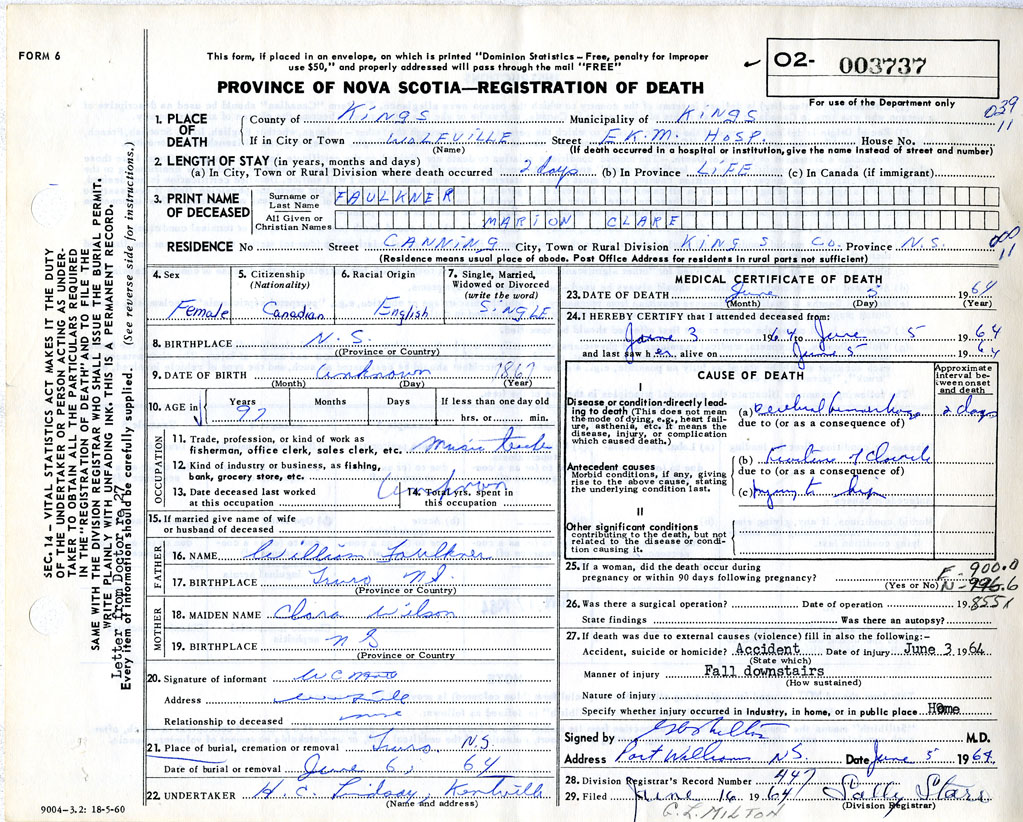 FORM 6
This form, if placed in an envelope, on which is printed "Dominion Statistics – Free, penalty for improper
use $50," and properly addressed will pass through the mail "FREE"
PROVINCE OF NOVA SCOTIA—REGISTRATION OF DEATH
02- 003737
For use of the Department only
039
11
SEC. 14 – VITAL STATISTICS ACT MAKES IT THE DUTY
OF THE UNDERTAKER OR PERSON ACTING AS UNDER-
TAKER TO OBTAIN ALL THE PARTICULARS REQUIRED
IN THE "REGISTRATION OF DEATH" AND TO FILE THE
SAME WITH THE DIVISION REGISTRAR WHO SHALL ISSUE THE BURIAL PERMIT.
WRITE PLAINLY WITH UNFADING INK. THIS IS A PERMANENT RECORD.
Letter from Doctor re 27
Every item of information should be carefully supplied. (See reverse side for instructions.)
1. PLACE OF DEATH
County of Kings Municipality of Kings
If in City or Town WOLFVILLE Street E.K.M. HOSP. House No.
(Name) (If death occurred in a hospital or institution, give the name instead of street and number)
2. LENGTH OF STAY (in years, months and days)
(a) In City, Town or Rural Division where death occurred 2 days (b) In Province LIFE (c) In Canada (if immigrant)
3. PRINT NAME OF DECEASED
Surname or Last Name FAULKNER
All Given or Christian Names MARION CLARE
RESIDENCE No Street CANNING City, Town or Rural Division KING S CO. Province N.S.
000
11
(Residence means usual place of abode. Post Office Address for residents in rural parts not sufficient)
4. Sex Female
5. Citizenship (Nationality) Canadian
6. Racial Origin English
7. Single, Married, Widowed or Divorced (write the word) SINGLE
8. BIRTHPLACE N.S.
(Province or Country)
9. DATE OF BIRTH unknown 1867
(Month) (Day) (Year)
10. AGE in Years 97 Months Days If less than one day old
hrs. or min.
OCCUPATION
11. Trade, profession, or kind of work as
fisherman, office clerk, sales clerk, etc. Music teacher
12. Kind of industry or business, as fishing,
bank, grocery store, etc.
unknown
13. Date deceased last worked
at this occupation
14. Total yrs. spent in
this occupation
15. If married give name of wife
or husband of deceased
FATHER
16. NAME William Faulkner
17. BIRTHPLACE Truro N.S.
(Province or Country)
MOTHER
18. MAIDEN NAME Clara Wilson
19. BIRTHPLACE N S
(Province or Country)
20. Signature of informant
Address
Relationship to deceased
21. Place of burial, cremation or removal Truro N.S.
Date of burial or removal June 6 64
22. UNDERTAKER H. C. Lindsay, Kentville
(Name and address)
9004-3.2: 18-5-60
MEDICAL CERTIFICATE OF DEATH
23. DATE OF DEATH June 5 1964
(Month) (Day) (Year)
24. I HEREBY CERTIFY that I attended deceased from:
June 3 1964 to June 5 1964
and last saw her alive on June 5 1964
CAUSE OF DEATH
Approximate interval between onset and death
I
Disease or condition directly leading to death (This does not mean the mode of dying, e.g., heart failure, asthenia, etc. It means the disease, injury, or complication which caused death.)
(a) Cerebral hemorrhage 2 days
due to (or as a consequence of)
Antecedent causes
Morbid conditions, if any, giving rise to the above cause, stating the underlying condition last.
(b) Fracture of
due to (or as a consequence of)
(c) Injury to hip
II
Other significant conditions
contributing to the death, but not
related to the disease or condition causing it.
25. If a woman, did the death occur during
pregnancy or within 90 days following pregnancy?
(Yes or No)
E-900.0
N-
26. Was there a surgical operation? Date of operation 19
State findings Was there an autopsy?
27. If death was due to external causes (violence) fill in also the following:–
Accident, suicide or homicide? Accident Date of injury June 3, 1964
(State which)
Manner of injury Fall downstairs
(How sustained)
Nature of injury
Specify whether injury occurred in Industry, in home, or in public place Home
Signed by M.D.
Address Port Williams N.S. Date June 5 1964
28. Division Registrar's Record Number 447
29. Filed June 16 1964 Sally Starr
(Division Registrar)
G.L. MILTON